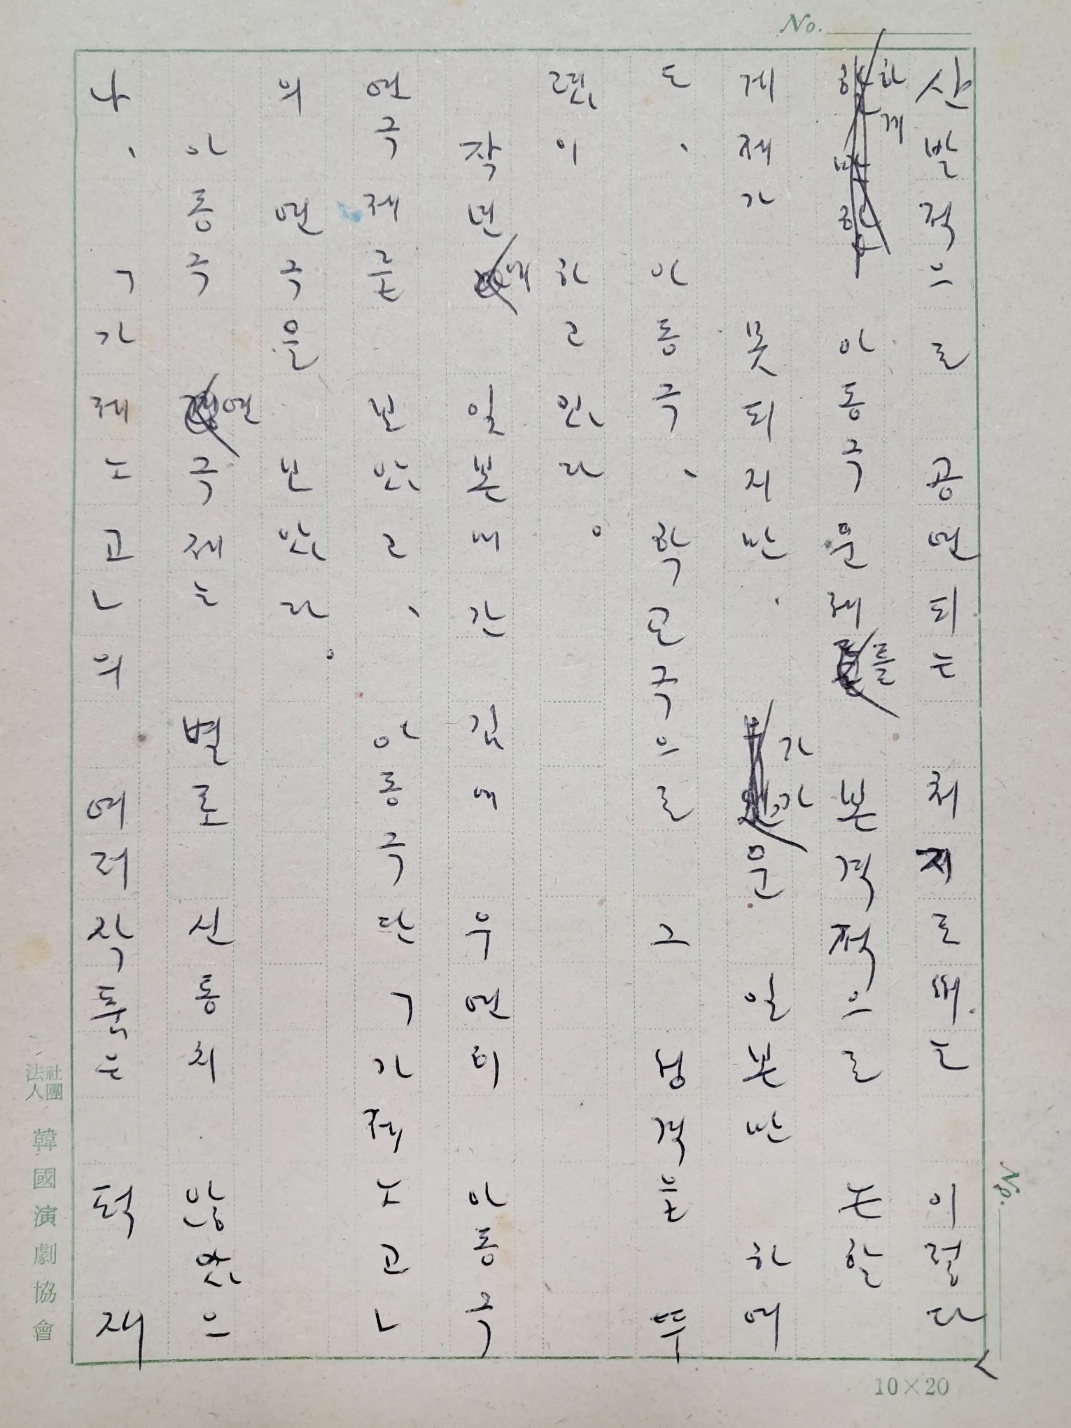 No.
산발적으로 공연되는 처지로써도 이렇다
하게 아동극 문제를 본격적으로 논할
계제가 못되지만. 가까운 일본만 하여
도, 아동극, 학교극으로 그 성격을 뚜
렸이 하고 있다。
작년에 일본에 간 김에 우연히 아동극
연극제를 보았고, 아동극단 「가제노고」
의 연극을 보았다。
아동극 연극제는 별로 신통치 않았으
나, 「가제노고」의 여러 작품은 퍽 재
No.
10×20
社團法人 韓國演劇協會